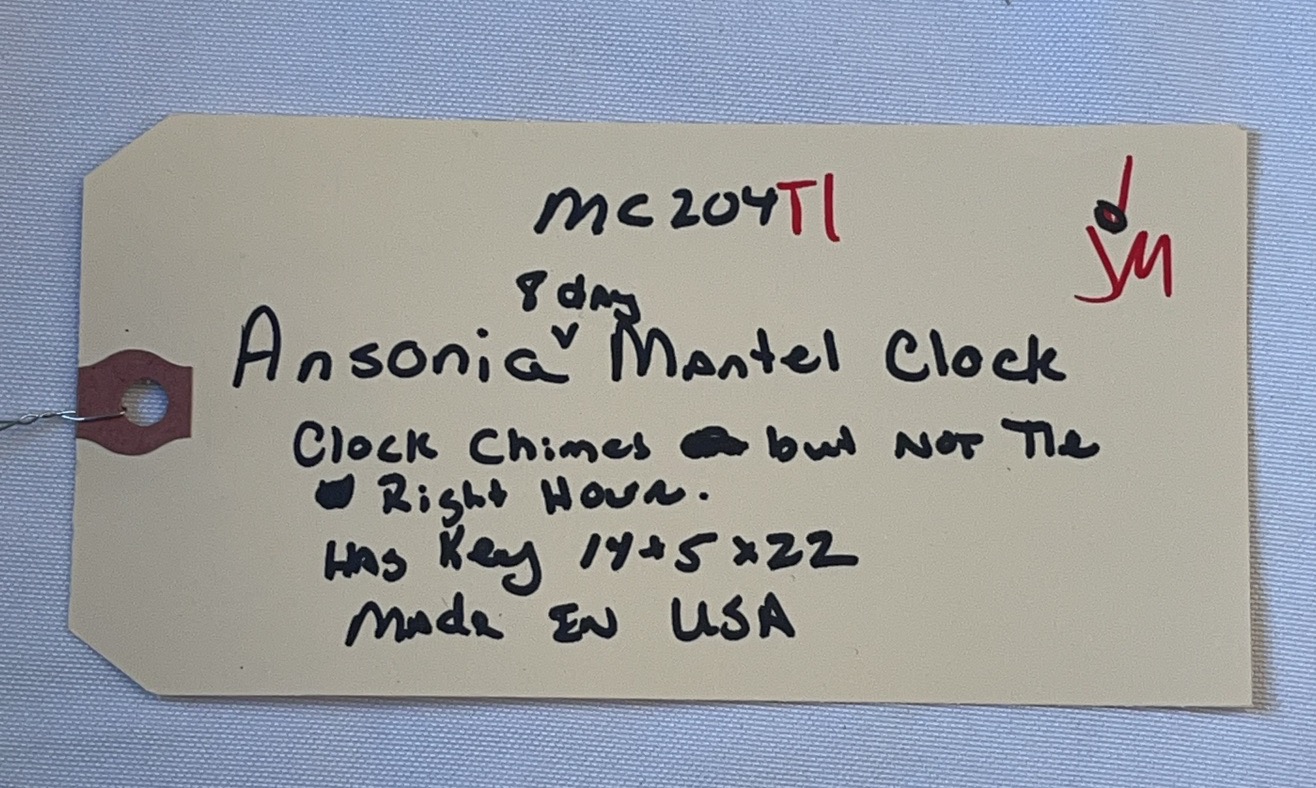 MC204T1
JM
8 day
Ansonia ˅ Mantel Clock
Clock Chimes but NOT The
Right Hour.
Has Key 14+5x22
Made IN USA